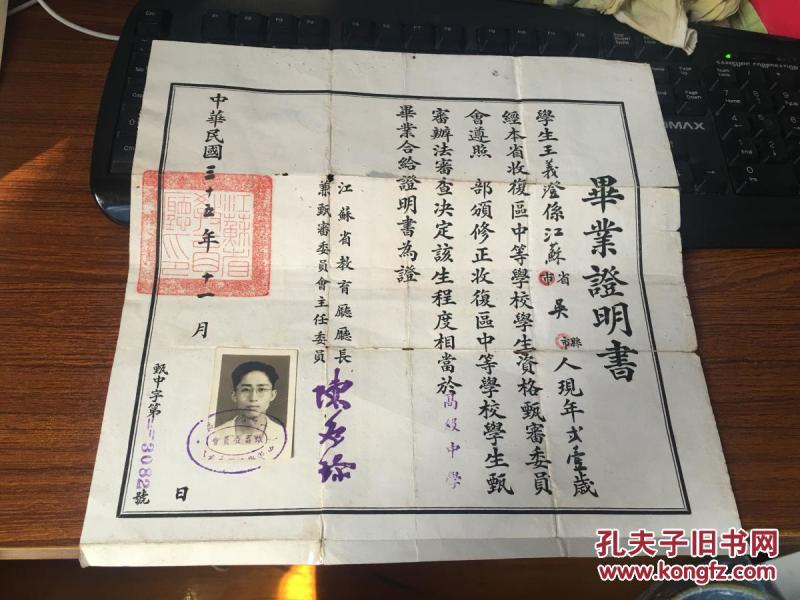 畢業證明書
學生王義澄係江蘇省市吳縣市人現年弍壹歲
經本省收復區中等學校學生資格甄審委員
會遵照 部頒修正收復區中等學校學生甄
審辦法審查決定該生程度相當於高級中學
畢業合給證明書為證
江蘇省教育廳廳長
兼甄審委員會主任委員
中華民國三十五年十一月 日
江蘇省教育廳印
甄中字第 3082號
孔夫子旧书网
www.kongfz.com